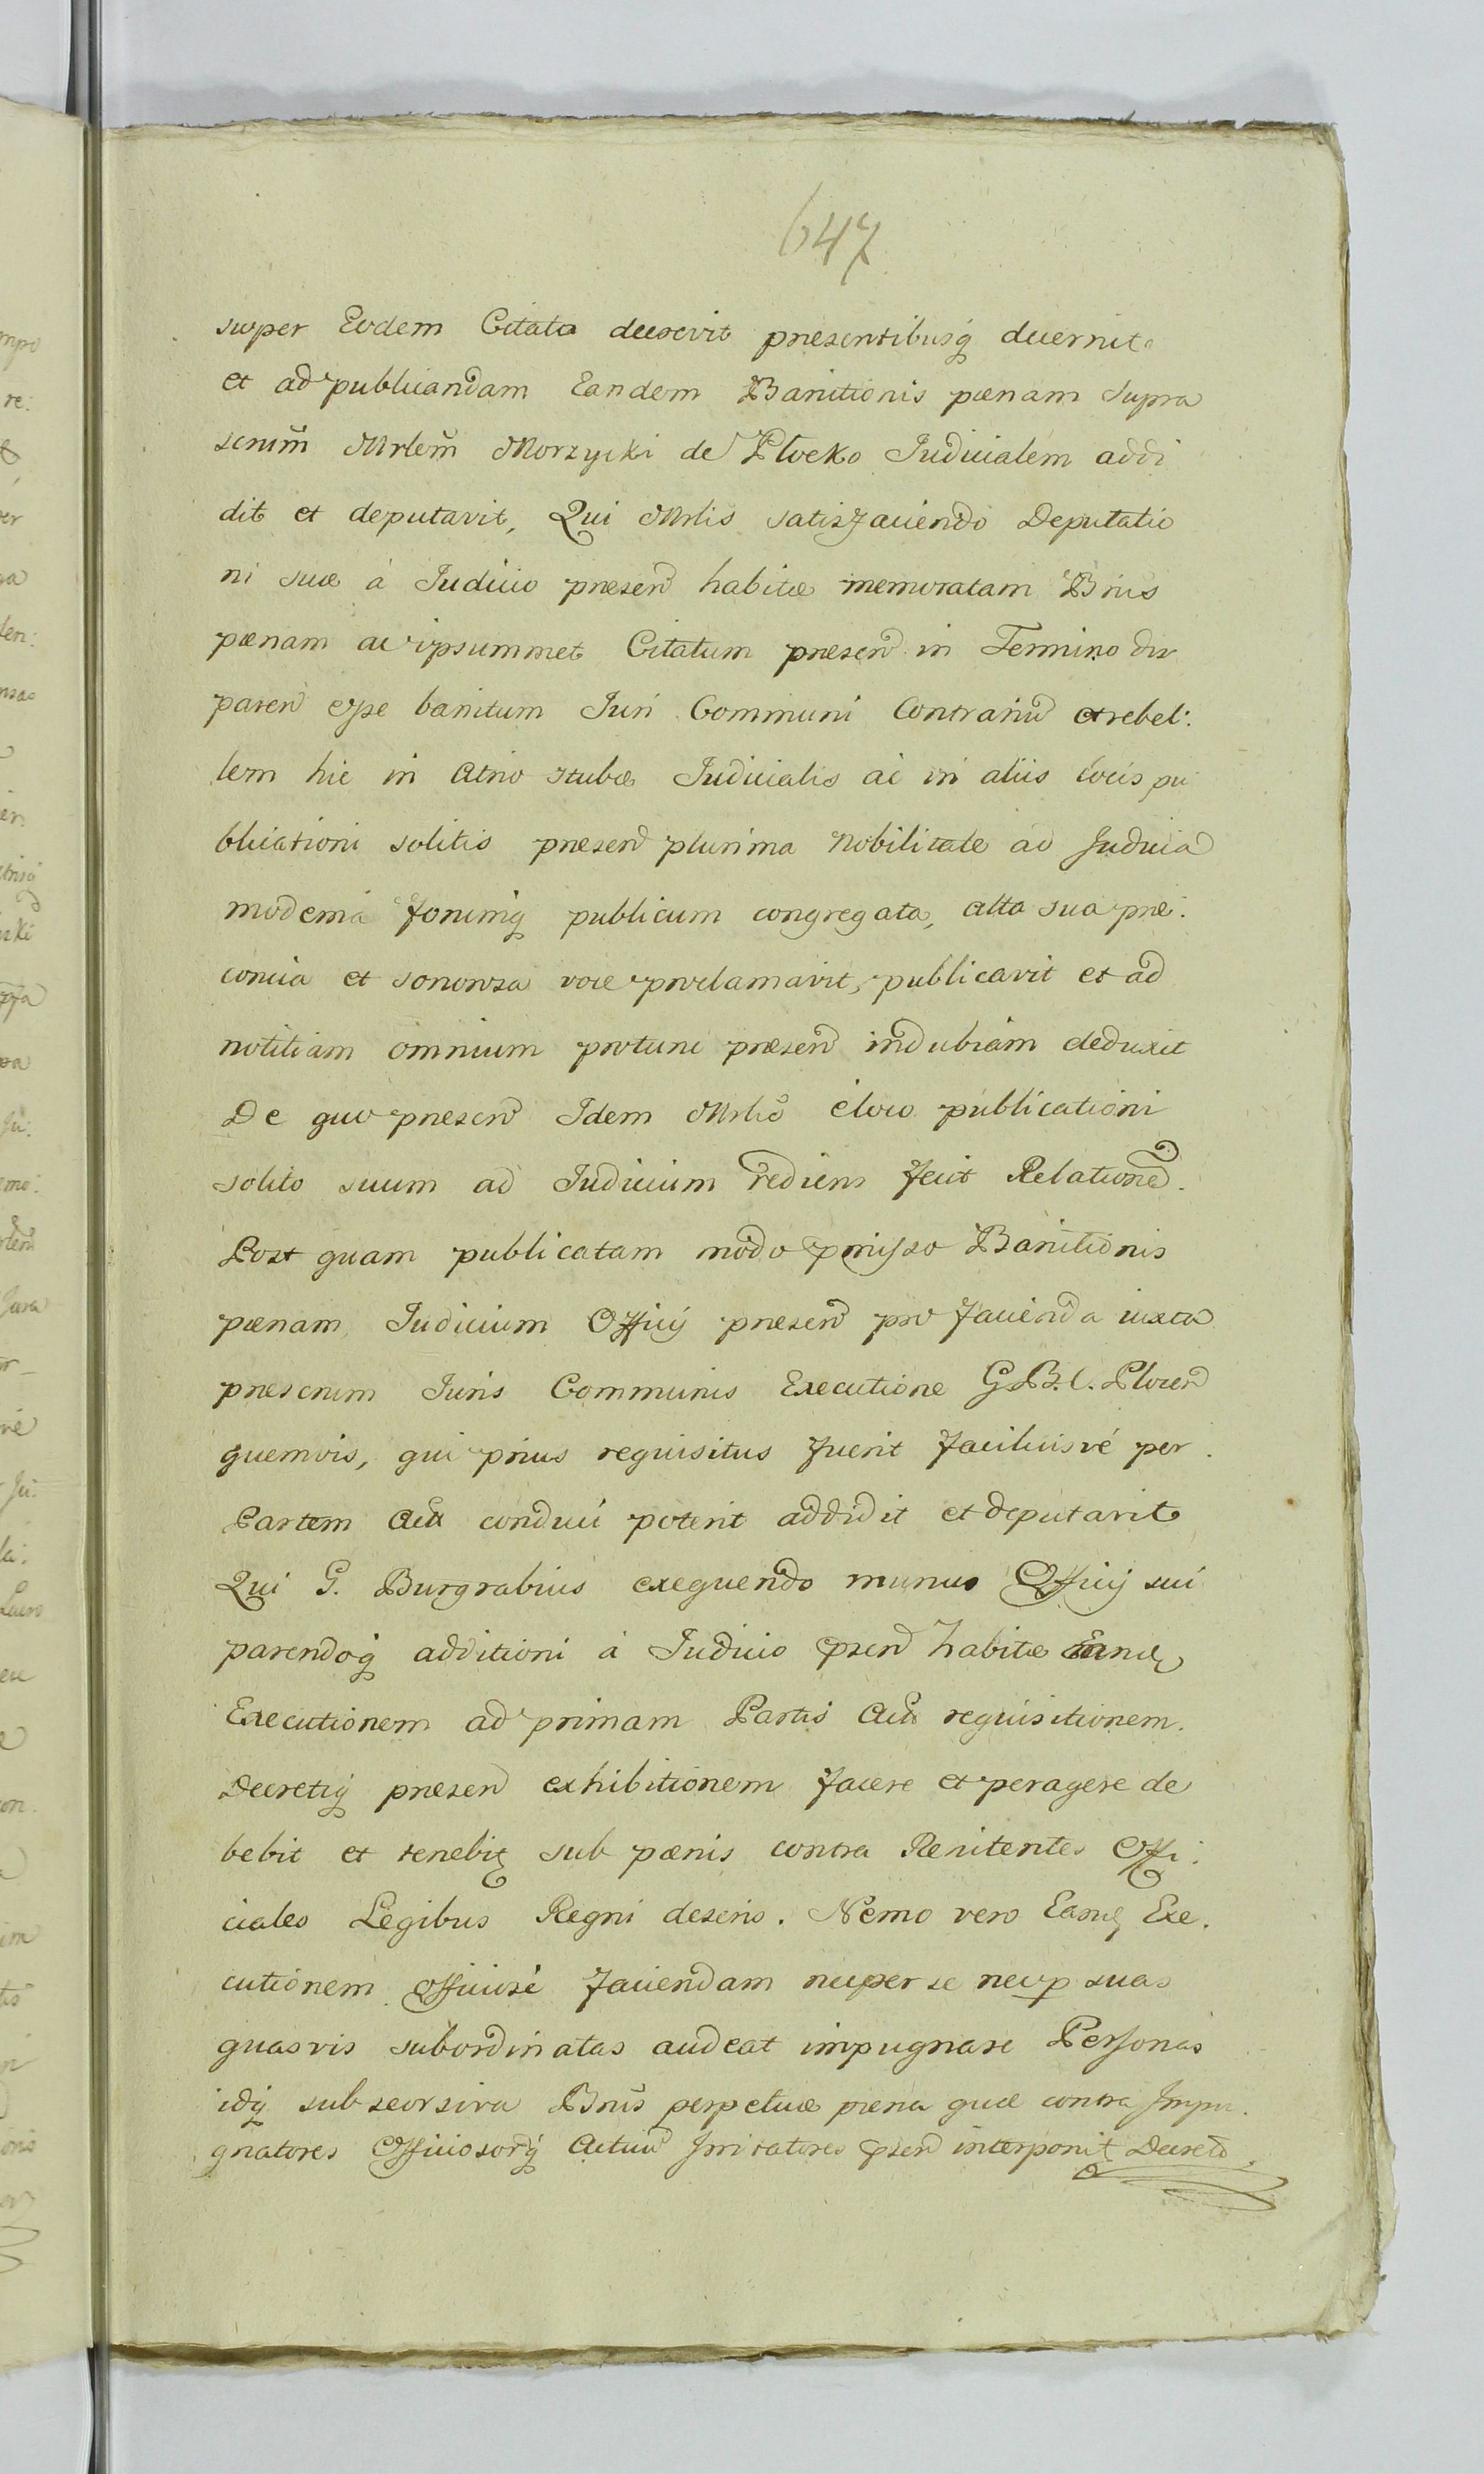 647
super Eodem Citato decrevit presentibusq decernit
et ad publicandam Eandem Banitionis pœnam supra
scrium̃ Mrlem̃ Morzycki de Plocko Judicialem addi
dit et deputavit, Qui Mrlis satisfaciendo Deputatio
ni suæ à Judicio præsen habitæ memoratam Bnis
pœnam ac ipsummet Citatum præsen in Termino
paren esse banitum Juri Communi Contrariu et rebel:
lem hic in atrio stubæ Judicialis ac in aliis locis pu
blicationi solitis præsen plurima Nobilitate ad Judicia
moderna forumq publicum congregata, alta sua præ:
conica et sonorosa voce proclamavit, publicavit et ad
notitiam omnium protunc præsen indubiam deduxit
De quo præsen Idem Mrlis e loco publicationi
solito suum ad Judicium rediens fecit Relatione.
Post quam publicatam modo præmisso Banitionis
pœnam, Judicium Officij præsen pro facienda iuxta
prescrium Juris Communis Executione G.B.C. Plocen
quemvis, qui prius requisitus fuerit faciliusvé per
Partem Actr conduci poterit addidit et deputavit
Qui G. Burgrabius exequendo munus Officij sui
parendoq additioni à Judicio psen habitæ
Executionem ad primam Partis Act requisitionem.
Decretiq præsen exhibitionem facere et peragere de
bebit et tenebit sub pœnis contra Renitentes Offi:
ciales Legibus Regni descris. Nemo vero Eam Exe.
cutionem Officiosé faciendam nec per se nec p suas
quasvis subordinatas audeat impugnare Personas
idq sub seorsiva Bnis perpetuæ pœna quæ contra Impu.
gnatores Officiosorq Actuu Irritatores psen interponit Decreto.